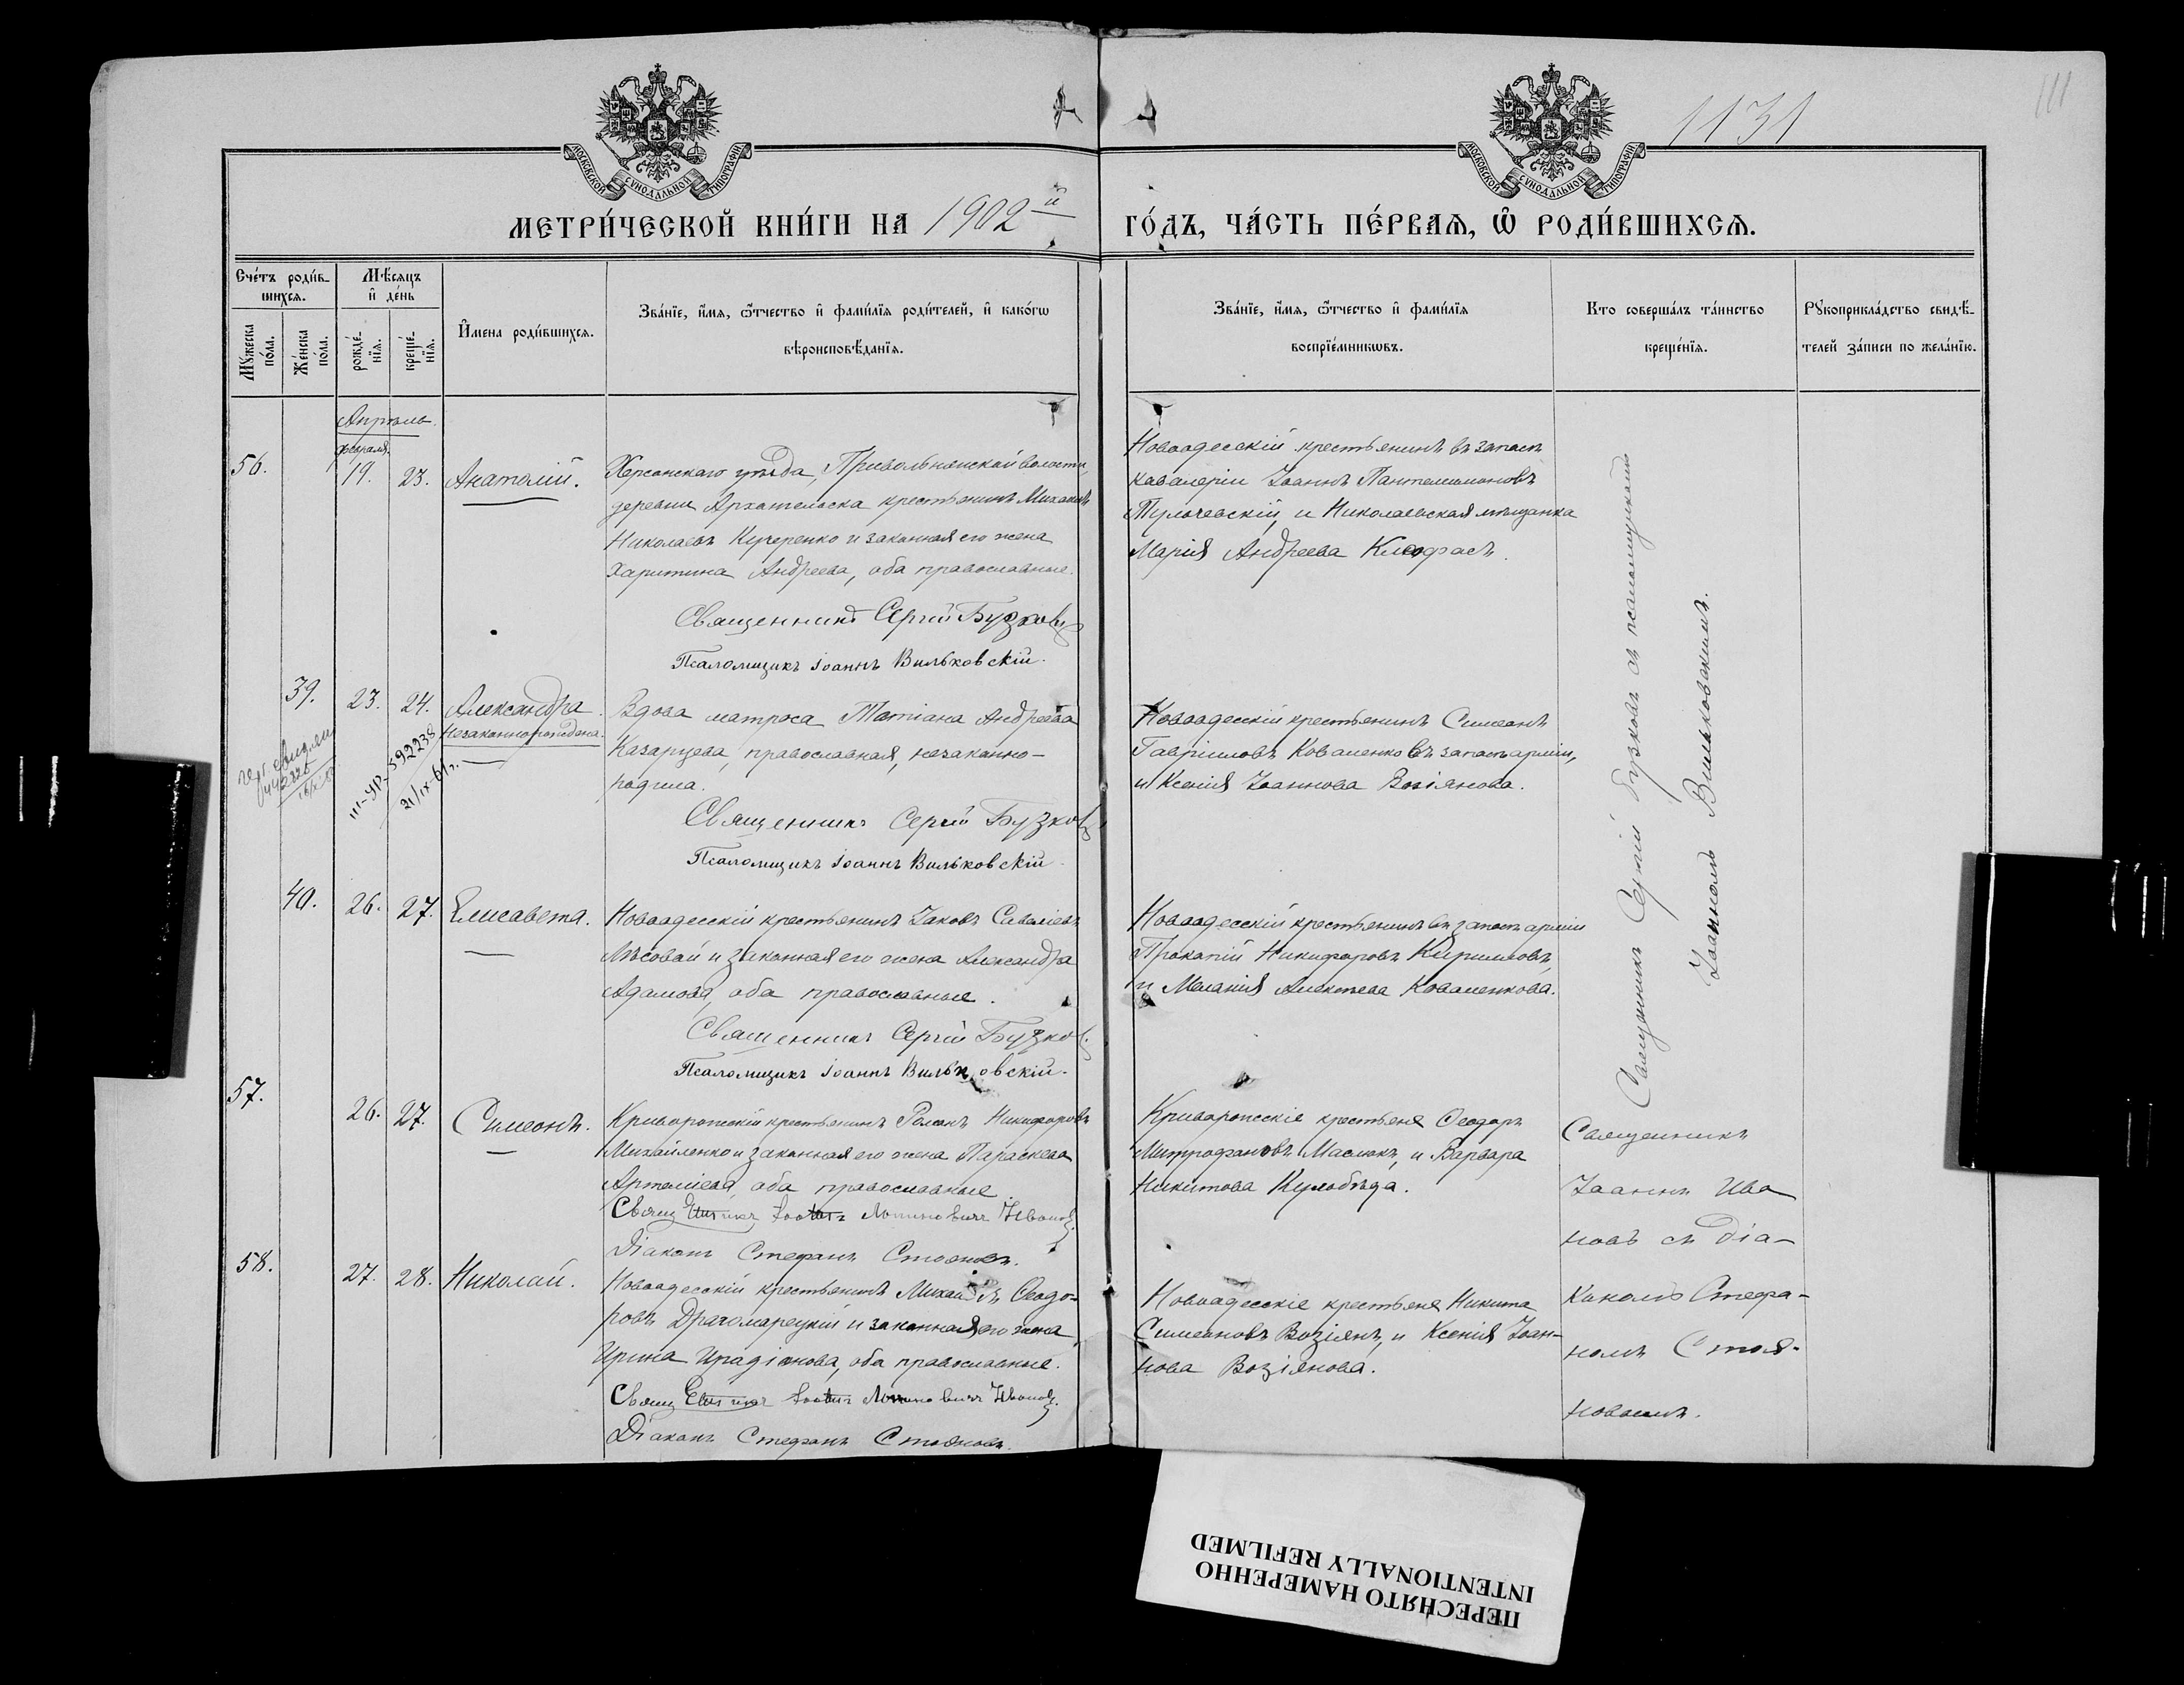 111
1131
МОСКОВСКОЙ СѴНОДАЛЬНОЙ ТИПОГРАФІИ
МОСКОВСКОЙ СѴНОДАЛЬНОЙ ТИПОГРАФІИ
МЕТРИ́ЧЕСКОЙ КНИ́ГИ НА 1902й ГО́ДЪ, ЧА́СТЬ ПЕ́РВАѦ, Ѡ РОДИ́ВШИХСѦ.
Сче́тъ роди́в-
шихсѧ.
Мꙋ́жеска по́ла.
Же́нска по́ла.
Мѣ́сѧцъ
и҆ де́нь
рожде́-
нїѧ.
креще́-
нїѧ.
И҆мена роди́вшихсѧ.
Зва́нїе, и҆́мѧ, ѻ҆́тчество и҆ фами́лїѧ роди́телей, и҆ како́гѡ
вѣроисповѣ́данїѧ.
Зва́нїе, и҆́мѧ, ѻ҆́тчество и҆ фами́лїѧ
воспрїе́мникѡвъ.
Кто соверша́лъ та́инство
креще́нїѧ.
Рꙋкоприкла́дство свидѣ́-
телей за́писи по жела́нїю.
Апрѣль.
февраля.
56.
19.
23.
Анатолій.
Херсонскаго уѣзда, Привольнянской волости,
деревни Архангельска крестьянинъ Михаилъ
Николаевъ Кучеренко и законная его жена
Харитина Андреева, оба православные.
Священникъ Сергій Бузковъ
Псаломщикъ Іоаннъ Вильковскій.
Новоодесскій крестьянинъ въ запасѣ
кавалеріи Іоаннъ Пантелеимоновъ
Тульчевскій, и Николаевская мѣщанка
Марія Андреева Клеофасъ.
Священникъ Сергій Бузковъ съ псаломщикомъ
Іоанномъ Вильковскимъ.
39.
23.
24.
Александра
Незаконнорождена.
592238
21/IX-61г.
Вдова матроса Татіана Андреева
Казарцева, православная, незаконно-
родила.
Священникъ Сергій Бузковъ
Псаломщикъ Іоаннъ Вильковскій.
Новоодесскій крестьянинъ Симеонъ
Гавріиловъ Коваленко въ запасѣ арміи,
и Ксенія Іоаннова Возіянова.
40.
26.
27.
Елисавета.
Новоодесскій крестьянинъ Іаковъ Савеліевъ
Лѣсовой и законная его жена Александра
Адамова, оба православные.
Священникъ Сергій Бузковъ.
Псаломщикъ Іоаннъ Вильковскій.
Новоодесскій крестьянинъ въ запасѣ арміи
Прокопій Никифоровъ Кирилловъ,
и Меланія Алексѣева Коваленкова.
57.
26.
27.
Симеонъ.
Криворожскій крестьянинъ Романъ Никифоровъ
Михайленко и законная его жена Параскева
Артеміева, оба православные.
Діаконъ Стефанъ Стояновъ.
Криворожскіе крестьяне Ѳеодоръ
Митрофановъ Маслюкъ, и Варвара
Никитова Кулобѣда.
Священникъ
Іоаннъ Ива
новъ съ діа-
кономъ Стефа-
номъ Стоя-
новымъ.
58.
27.
28.
Николай.
Новоодесскій крестьянинъ Михаилъ Ѳеодо-
ровъ Драгомарецкій и законная его жена
Ирина Иродіонова, оба православные.
Діаконъ Стефанъ Стояновъ.
Новоодесскіе крестьяне Никита
Симеоновъ Возіянъ, и Ксенія Іоан-
нова Возіянова.
ПЕРЕСНЯТО НАМЕРЕННО
INTENTIONALLY REFILMED